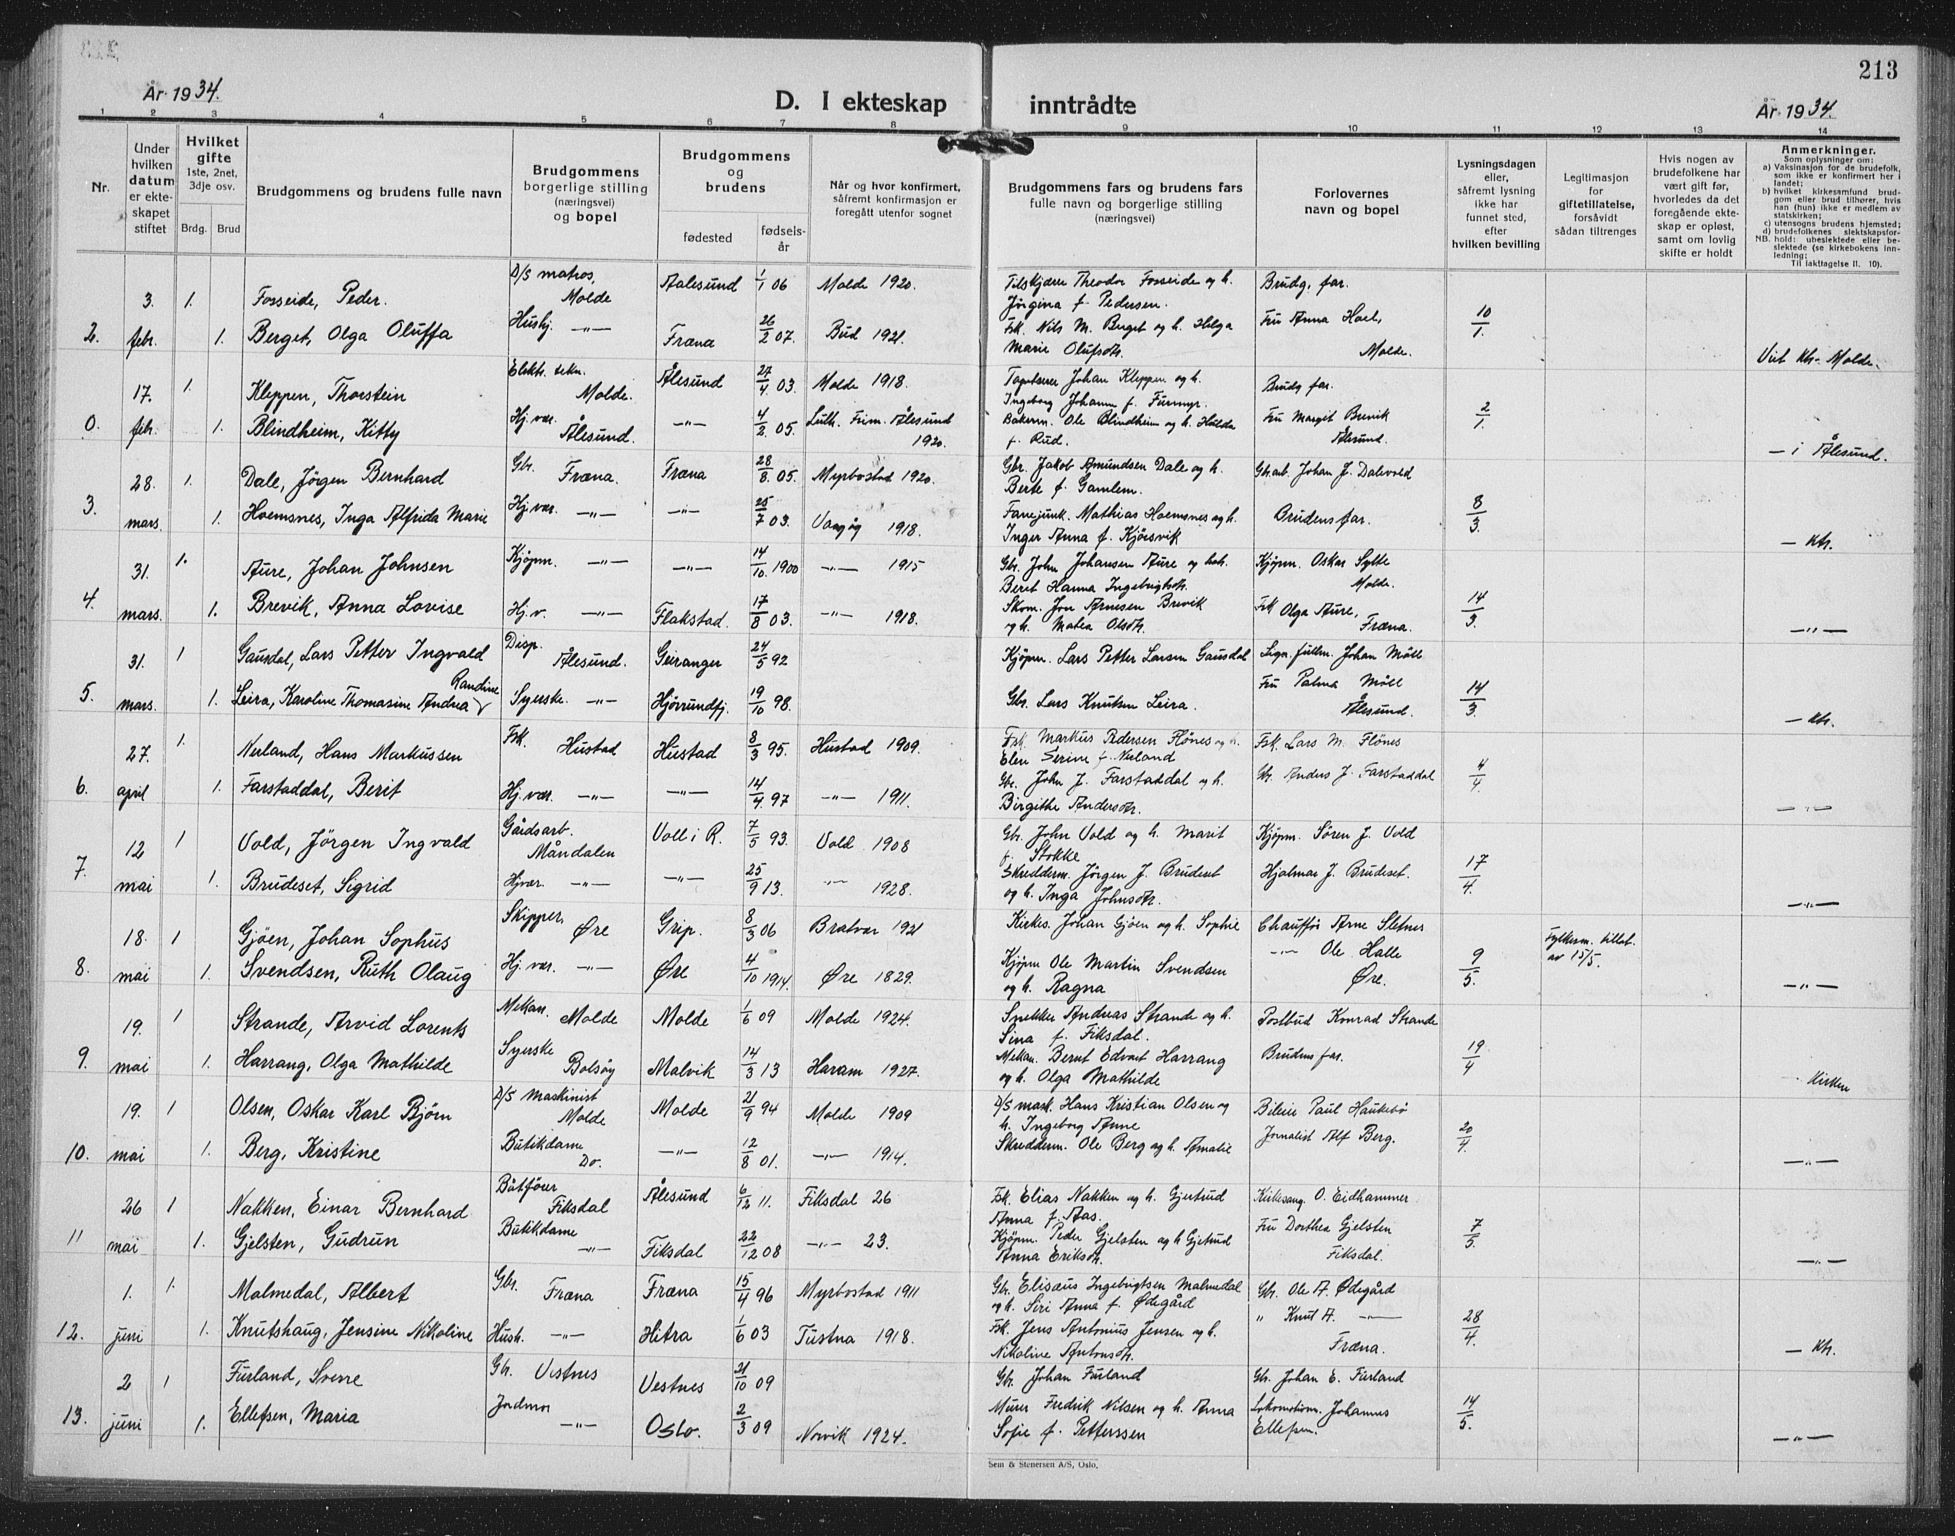 213
År 1934.
D. I ekteskap inntrådte
År 1934.
1 2 3 4 5 6 7 8 9 10 11 12 13 14
Nr.
Under hvilken datum er ekteskapet stiftet
Hvilket gifte 1ste, 2net, 3dje osv.
Brdg. Brud
Brudgommens og brudens fulle navn
Brudgommens borgerlige stilling (næringsvei) og bopel
Brudgommens og brudens
fødested fødselsår
Når og hvor konfirmert, såfremt konfirmasjon er foregått utenfor sognet
Brudgommens fars og brudens fars fulle navn og borgerlige stilling (næringsvei)
Forlovernes navn og bopel
Lysningsdagen eller, såfremt lysning ikke har funnet sted, efter hvilken bevilling
Legitimasjon for giftetillatelse, forsåvidt sådan tiltrenges
Hvis nogen av brudefolkene har vært gift før, hvorledes da det foregående ekteskap er opløst, samt om lovlig skifte er holdt
Anmerkninger.
Som oplysninger om:
a) Vaksinasjon for de brudefolk, som ikke er konfirmert her i landet;
b) hvilket kirkesamfund brudgom eller brud tilhører, hvis han (hun) ikke er medlem av statskirken;
c) utensogns brudens hjemsted;
d) brudefolkenes slektskapsforhold: ubeslektede eller beslektede (se kirkebokens innledning;
NB. Til iakttagelse II. 10).
3. 1. Forseide, Peder. D/S matros, Molde Aalesund 1/1 06 Molde 1920. Theodor Forseide og h. Jörgina f. Pedersen. Brudg. far.
2. febr. 1. Berget, Olga Oluffa Hushj. -"- Fræna 26/2 07. Bud 1921. Fsk. Nils M. Berget og h. Helga Marie Olufsdtr. Fru Anna Hoel, Molde. 10/1. Viet ktr. Molde.
17. 1. Kleppen, Thorstein Elektr. tekn. Molde. Ålesund 27/4 03. Molde 1918. Johan Kleppen og h. Ingeborg Johanne f. Furmyr. Brudg far.
0. febr. 1. Blindheim, Kitty Hj. vær. Ålesund. -"- 4/2 05. Luth. Frim. Ålesund 1920. Bakerm. Ole Blindheim og h. Hulda f. Rud. Fru Margit Brevik Ålesund. 2/1. — i Ålesund.
28. 1. Dale, Jörgen Bernhard Gbr. Fræna. Fræna 28/8 05. Myrbostad 1920. Gbr. Jakob Amundsen Dale og h. Berte f. Gamlem. Gb.arb. Johan J. Dalevold
3. mars. 1. Hoemsnes, Inga Alfrida Marie Hj. vær. -"- -"- 25/7 03. Vaagöy 1918. Fanejunk. Mathias Hoemsnes og h. Inger Anna f. Kjörsvik Brudens far. 8/3. — ktr.
31. 1. Aure, Johan Johnsen Kjøpm. -"- -"- 14/10. 1900 -"- 1915 Gbr. John Johansen Aure og h. Beret Hanna Ingebrigtsdtr. Kjöpm. Oskar Sylte Molde.
4. mars. 1. Brevik, Anna Lovise Hj. v. -"- Flakstad. 17/8 03. -"- 1918. Skom. Jon Arnesen Brevik og h. Matea Olsdtr. Frk Olga Aure, Fræna. 14/3. -"-
31. 1 Gausdal, Lars Petter Ingvald Disp. Ålesund. Geiranger 24/5 92 Kjöpm. Lars Petter Larsen Gausdal Johan Möll
5. mars. 1. Leira, Karoline Thomasine Andrea Randine Syerske -"- Hjörrundfj. 19/10 98. Gbr. Lars Knutsen Leira. Fru Palma Möll Ålesund. 14/3. — ktr.
27. 1. Nerland, Hans Markussen Fsk. Hustad Hustad 8/3 95. Hustad 1909. Fsk. Markus Pedersen Flönes og h. Elen Serine f. Nerland Fsk. Lars M. Flönes
6. april 1. Farstaddal, Berit Hj. vær. -"- -"- 14/4 97 -"- 1911. Gbr. John J. Farstaddal og h. Birgithe Andersdtr. Gbr. Anders J. Farstaddal 4/4. -"-
12 1 Vold, Jörgen Ingvald Gårdsarb. Måndalen Voll i R. 7/5 93. Vold 1908 Gbr. John Vold og h. Marit f. Stokke Kjöpm. Sören J. Vold
7. mai 1. Brudeset, Sigrid Hjvær. -"- -"- 25/9 13. -"- 1928. Skredderm. Jörgen J. Brudeset og h. Inga Johnsdtr. Hjalmar J. Brudeset. 17/4. -"-
18. 1 Gjöen, Johan Sophus Skipper, Øre Grip. 8/3 06 Bratvær 1921 Kirkes. Johan Gjöen og h. Sophie Chauffør Arne Sletnes
8. mai 1. Svendsen, Ruth Olaug Hj. vær. -"- Øre 4/10 1914. Øre 1829. Kjöpm Ole Martin Svendsen og h. Ragna -"- Ole Halle Øre. 9/5. Fylkesm. tillat. av 15/5. -"-
19. 1 Strande, Arvid Lorents Mekan. Molde Molde 1/6 09 Molde 1924. Snekker Andreas Strande og h. Sina f. Fiksdal. Postbud Konrad Strande
9. mai 1. Harrang, Olga Mathilde Syerske Bolsöy Malvik 14/3 13 Haram 1927. Mekan. Bernt Edvart Harrang og h. Olga Mathilde Brudens far. 19/4 - Kirken
19. 1 Olsen, Oskar Karl Bjørn D/S maskinist Molde Molde 21/9 94 Molde 1909 D/S mask. Hans Kristian Olsen og h. Ingeborg Anne Bileier Paul Haukebö
10. mai 1. Berg, Kristine Butikdame Do. -"- 12/8 01. -"- 1914. Skredderm. Ole Berg og h. Amalie Jornalist Alf Berg. 20/4. -"-
26 1 Nakken, Einar Bernhard Båtförer Fiksdal Ålesund 6/12 11. Fiksdal 26 Fsk. Elias Nakken og h. Gjertrud Anna f. Aas. Kirkesang. O. Eidhammer
11 mai 1. Gjelsten, Gudrun Butikdame -"- Fiksdal 22/12 08 -"- 23. Kjöpm. Peder Gjelsten og h Gjetrud Anna Eriksdtr. Fru Dorthea Gjelsten Fiksdal. 7/5. -"-
1. 1. Malmedal, Albert Gbr. Fræna Fræna 15/4 96 Myrbostad 1911 Gbr. Elisæus Ingebrigtsen Malmedal og h. Siri Anna f. Ødegård Gbr. Ole A. Ødegård
12. juni 1. Knutshaug, Jensine Nikoline Hush. -"- Hitra 1/6 03 Tustna 1918. Fsk. Jens Antonius Jensen og h. Nikoline Antonsdtr. " Knut A. -"- Fræna. 28/4. — ktr.
2 1 Furland, Sverre Gbr. Vestnes Vestnes 21/10 09 Gbr. Johan Furland Gbr. Johan E. Furland
13. juni 1. Ellefsen, Maria Jordmor -"- Oslo. 2/3 09 Norvik 1924. Murer Fredrik Nilsen og h. Anna Sofie f. Petterssen Lokomotivm. Johannes Ellefsen. 14/5. -"-
Sem & Stenersen A/S, Oslo.